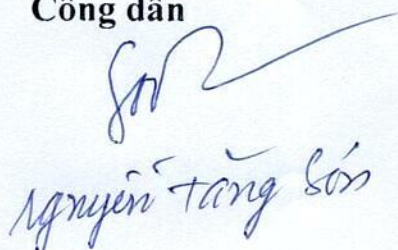 Công dân
Nguyễn Tăng Sơn